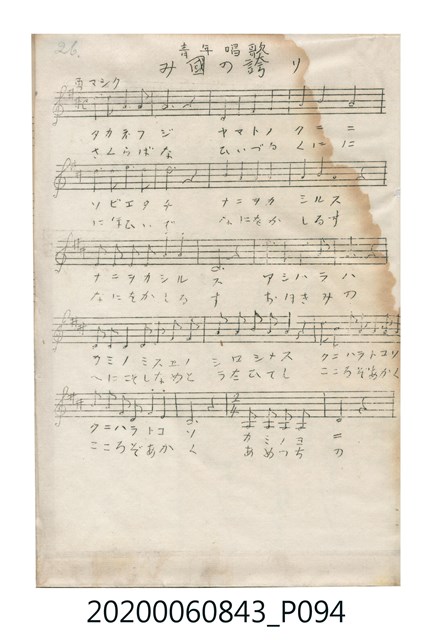 26.
青年唱歌
み國の誇り
勇マシク
タカネフジ ヤマトノ クニニ
さくらばな ひいづる くにに
ソビエタチ ナニヲカ シルス
に なにをか しるす
ナニヲカシル ス アシハラハ
なにをかしる す おほきみの
カミノミスエノ シロシメス クニハラトコソ
へにこそしなめと うたひてし こころぞあかく
クニハラトコ ソ カミノヨ ニ
こころぞあか く あめつち の
20200060843_P094